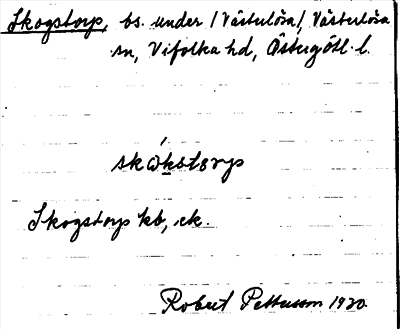 Skogstorp, bs. under /Västerlösa/, Västerlösa
sn, Vifolka hd, Östergötl. l.
skókstorp
Skogstorp kb, ek.
Robert Pettersson 1920.